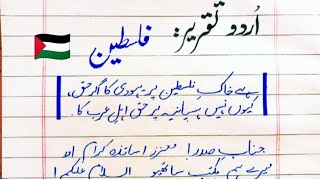 اُردو تقریر: فلسطین
ہے خاکِ فلسطین پر یہودی کا اگر حق،
کیوں نہیں ہسپانیہ پر حق اہلِ عرب کا۔
جناب صدر! معزز اساتذہ کرام اور
میرے ہم مکتب ساتھیو السلام علیکم!